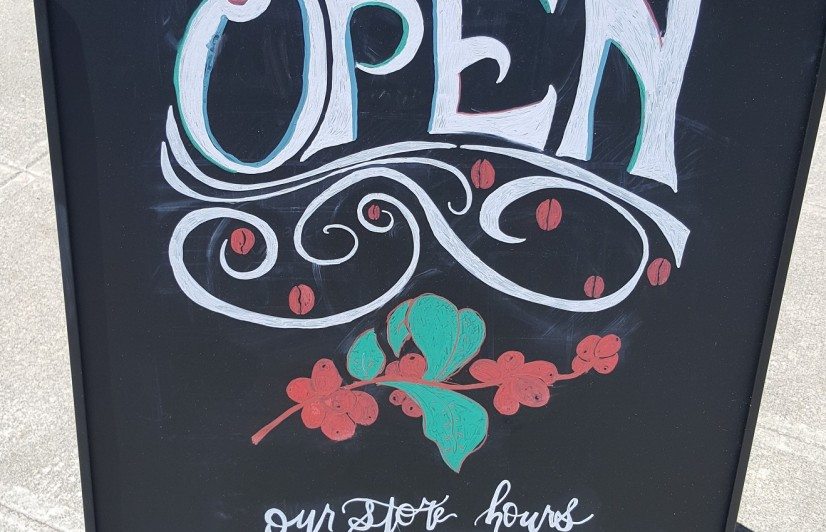 OPEN
our store hours